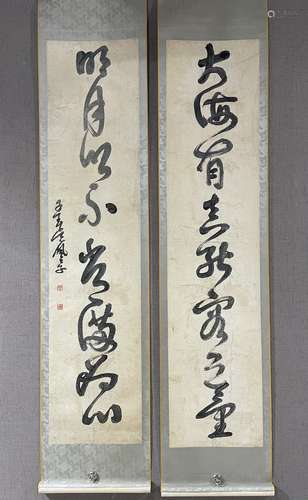 大海有真能容之量
明月以不常满为心